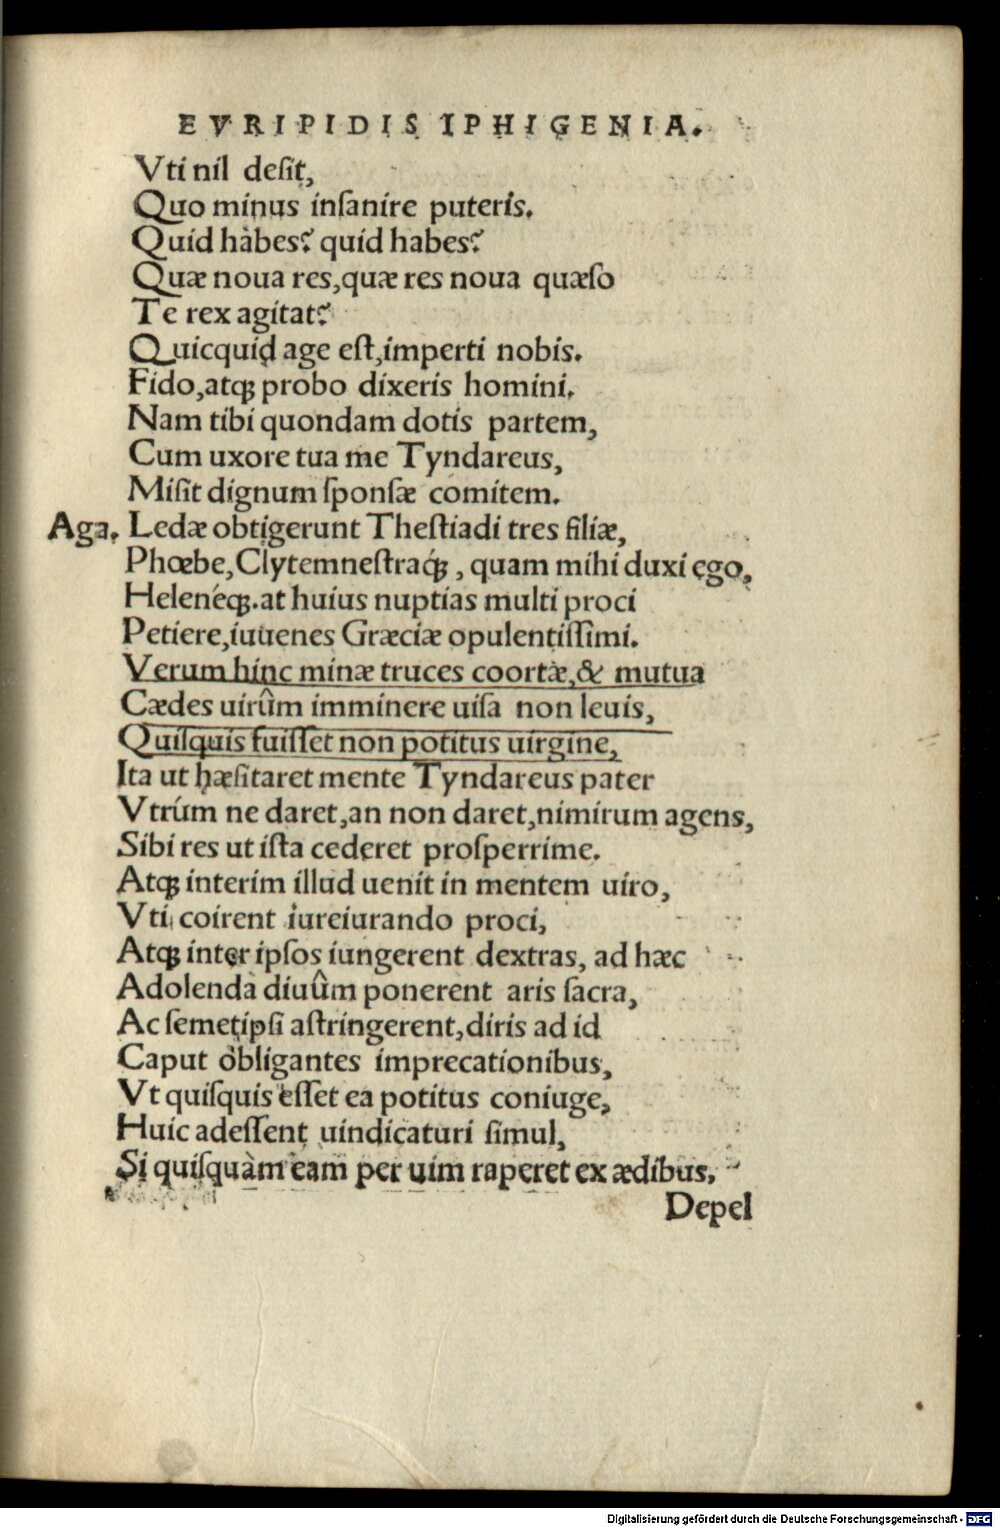 EVRIPIDIS IPHIGENIA.
Vti nil desit,
Quo minus insanire puteris.
Quid habes? quid habes?
Quæ noua res, quæ res noua quæso
Te rex agitat?
Quicquid age est, imperti nobis.
Fido, atqꝫ probo dixeris homini.
Nam tibi quondam dotis partem,
Cum uxore tua me Tyndareus,
Misit dignum sponsæ comitem.
Aga. Ledæ obtigerunt Thestiadi tres filiæ,
Phœbe, Clytemnestraq́ꝫ, quam mihi duxi ego,
Helenéqꝫ. at huius nuptias multi proci
Petiere, iuuenes Græciæ opulentissimi.
Verum hinc minæ truces coortæ, & mutua
Cædes uirûm imminere uisa non leuis,
Quisquis fuisset non potitus uirgine,
Ita ut hæsitaret mente Tyndareus pater
Vtrúm ne daret, an non daret, nimirum agens,
Sibi res ut ista cederet prosperrime.
Atqꝫ interim illud uenit in mentem uiro,
Vti coirent iureiurando proci,
Atqꝫ inter ipsos iungerent dextras, ad hæc
Adolenda diuûm ponerent aris sacra,
Ac semetipsi astringerent, diris ad id
Caput obligantes imprecationibus,
Vt quisquis esset ea potitus coniuge,
Huic adessent uindicaturi simul,
Si quisquàm eam per uim raperet ex ædibus,
Depel
Digitalisierung gefördert durch die Deutsche Forschungsgemeinschaft - DFG